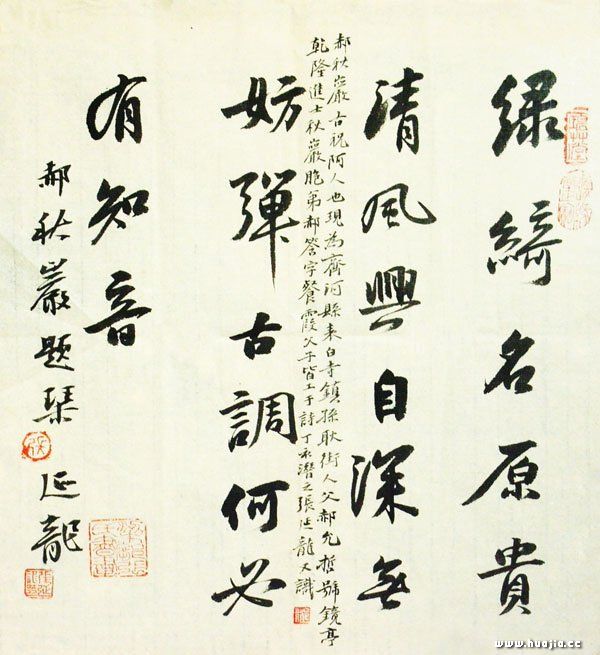 绿綺名原貴
清風興自深無
郝秋巖古祝阿人也現為齊河縣表白寺鎮孫耿街人父郝允哲號鏡亭
乾隆進士秋巖胞弟郝答字餐霞父子皆工于詩丁亥潛之張延龍又識
妨彈古調何必
有知音
郝秋巖題琴 延龍
www.huajia.cc